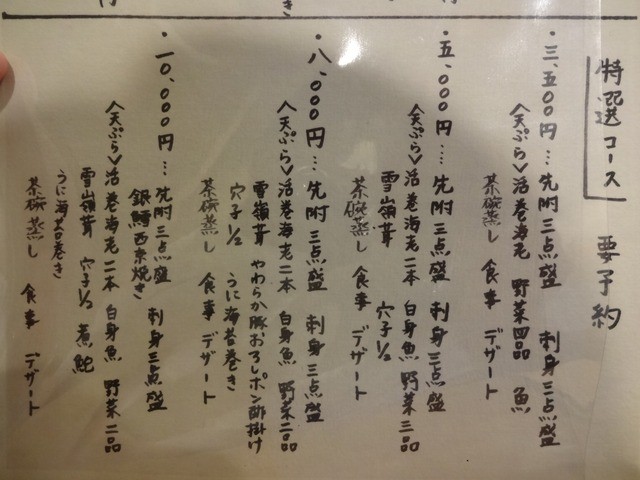 特選コース 要予約
・三、五〇〇円… 先附三点盛 刺身三点盛
〈天ぷら〉活巻海老 野菜四品 魚
茶碗蒸し 食事 デザート
・五、〇〇〇円… 先附三点盛 刺身三点盛
〈天ぷら〉活巻海老二本 白身魚 野菜三品
雪嶺茸 穴子1/2
茶碗蒸し 食事 デザート
・八、〇〇〇円… 先附三点盛 刺身三点盛
〈天ぷら〉活巻海老二本 白身魚 野菜二品
雪嶺茸 やわらか豚おろしポン酢掛け
穴子1/2 うに海苔巻き
茶碗蒸し 食事 デザート
・一〇、〇〇〇円… 先附三点盛 刺身三点盛
銀鱈西京焼き
〈天ぷら〉活巻海老二本 白身魚 野菜二品
雪嶺茸 穴子1/2 煮鮑
うに海苔巻き
茶碗蒸し 食事 デザート